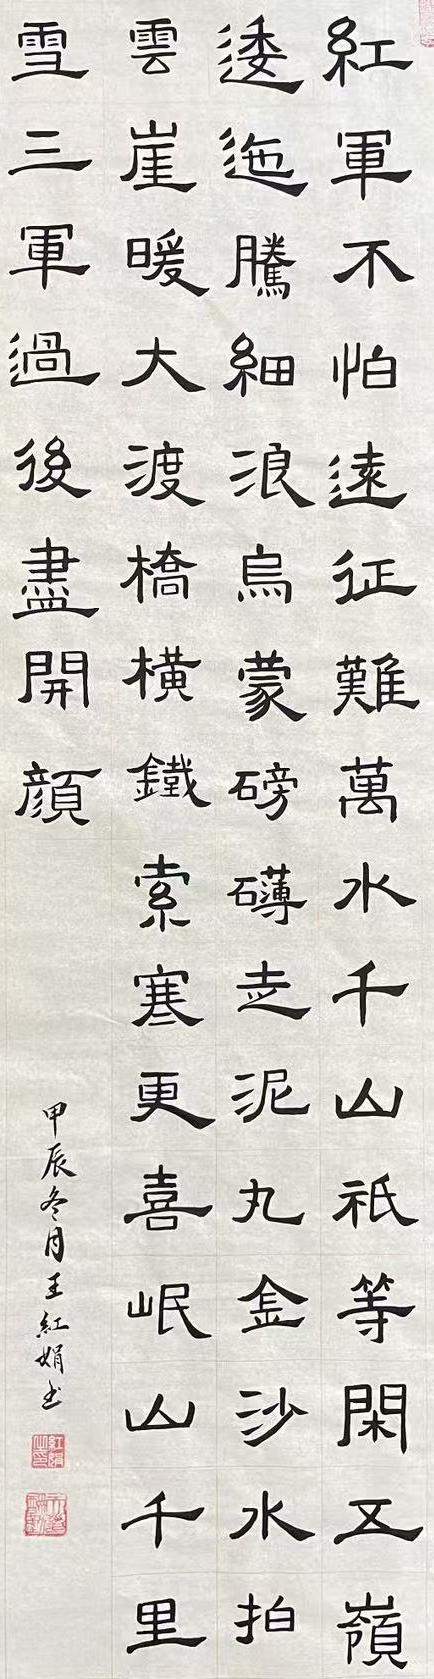 紅軍不怕遠征難萬水千山祇等閑五嶺
逶迤騰細浪烏蒙磅礴走泥丸金沙水拍
雲崖暖大渡橋橫鐵索寒更喜岷山千里
雪三軍過後盡開顏
甲辰冬月王紅娟书